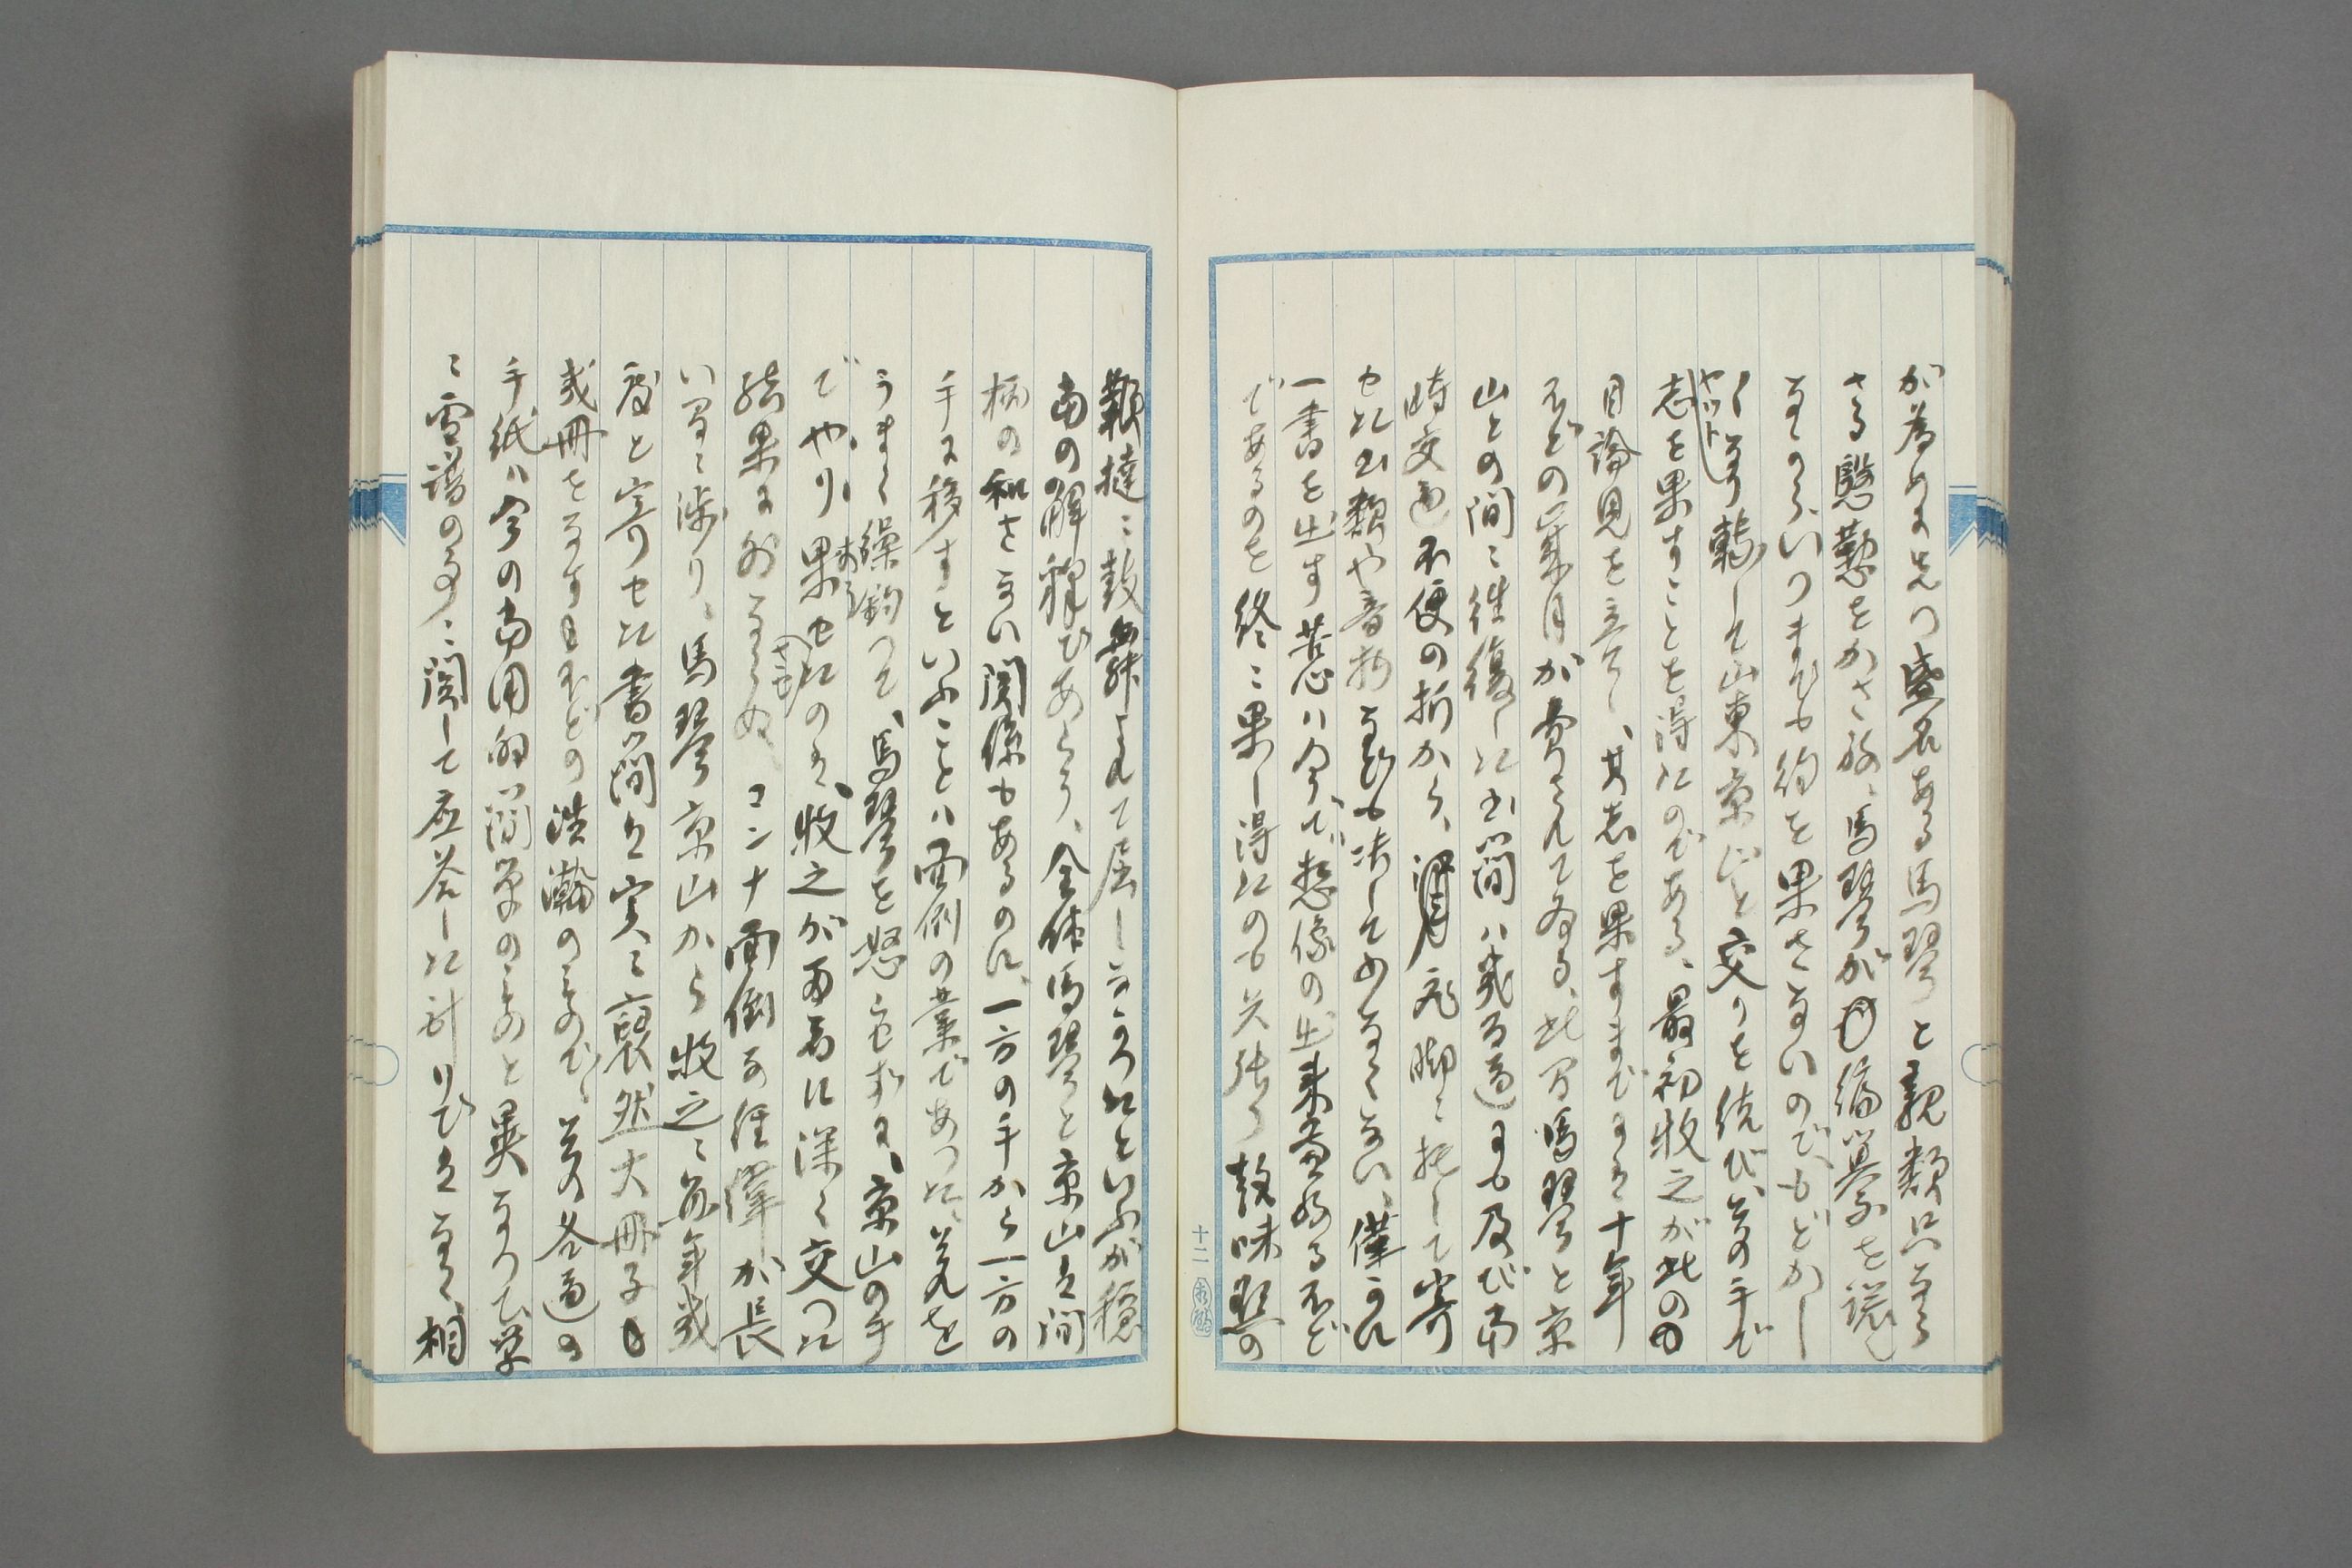 が為めに先つ盛名ある馬琴と親類只ならさ
る慇懃をかさね、馬琴が編纂を諾し
ながら、いつまでも約を果さないのでもどかし
くなり転して山東京山と交りを結び、其の手で
ヤット
志を果すことを得たのである、最初牧之が此の
目論見を立てし、其志を果すまでには十年
ほどの歳月が費されて居る、此間馬琴と京
山との間に往復した書簡ハ幾百通にも及び当
時交通不便の折から、飛脚に托して寄
せた書類や音物なども決して少なくない、僅かに
一書を出す苦心ハ今で想像の出来兼ねるほど
であるのを終に果し得たのも矢張り越味堅の
鞭撻に鼓舞されて屈しなかつたといふが穏
当の解釈であらう、全体馬琴と京山は間
柄の和さない関係もあるのに、一方の手から一方の
手に移すといふことハ面倒の業であつた、其れを
うまく操釣つて、馬琴を怒らせずに、京山の手
でやり果せたのは、牧之が両者に深く交つた
結果に外ならぬ、コンナ面倒な経緯が長
い間に渉り、馬琴京山から牧之に数年幾
度と寄りせた書簡は実に裒然大冊子
幾冊をなすほどの浩瀚のもので、其の各通の
手紙ハ今の当用的簡単のものと異なつて単
に雪譜の事に関して応答した計りではなく、相
十二